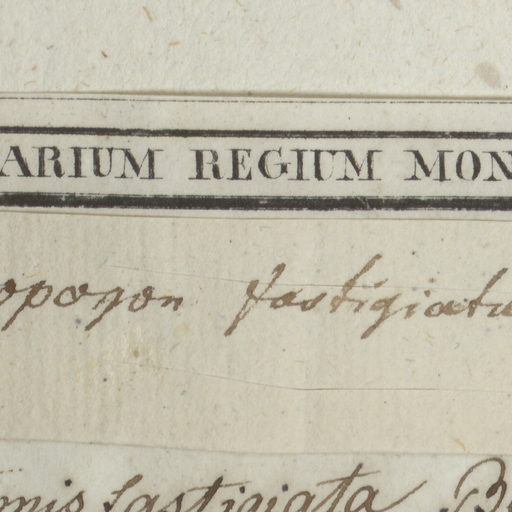 ARIUM REGIUM MON
opogon fastigiatu
onis fastigiata B